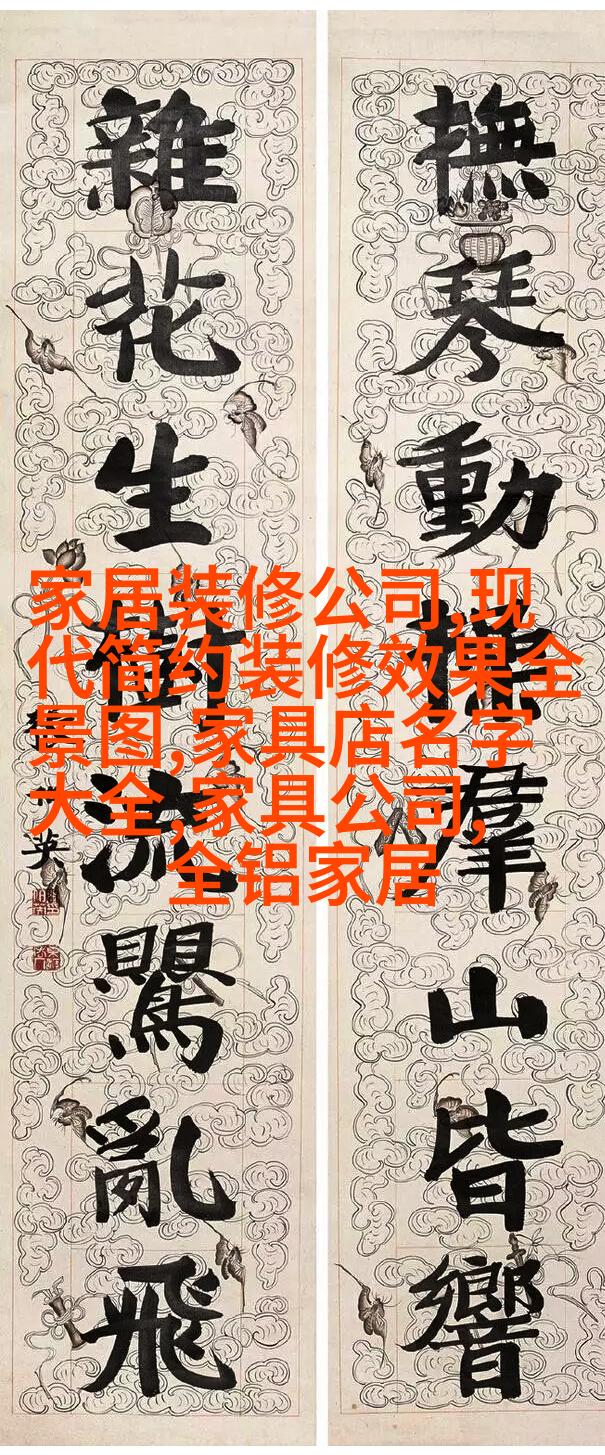 撫琴動操羣山皆響
雜花生樹流鸎亂飛
英
家居装修公司,现
代简约装修效果全
景图,家具店名字
大全,家具公司,
全铝家居